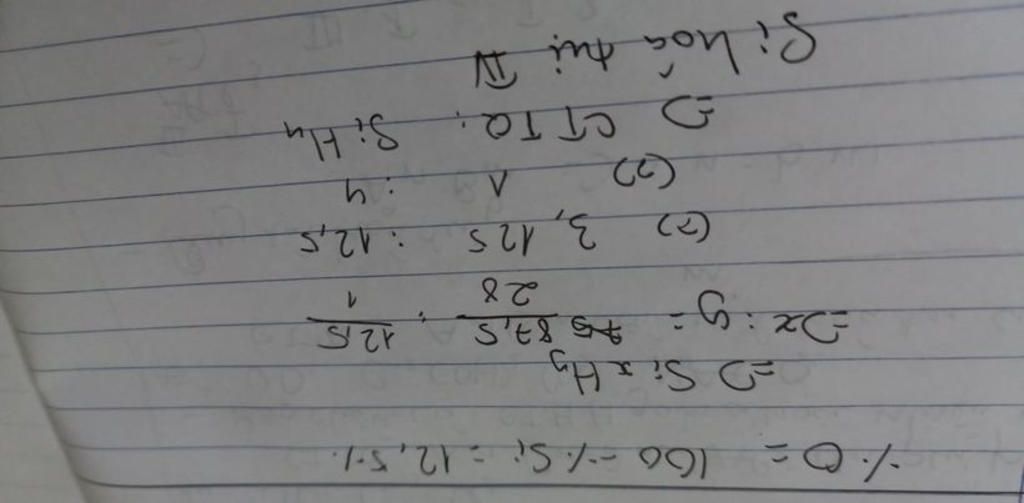 % O = 100 - % Si = 12,5 %
=> SixHy
=> x : y = 87,5/28 : 12,5/1
(=) 3,125 : 12,5
(=) 1 : 4
=> CTTQ : SiH4
Si hoá trị IV